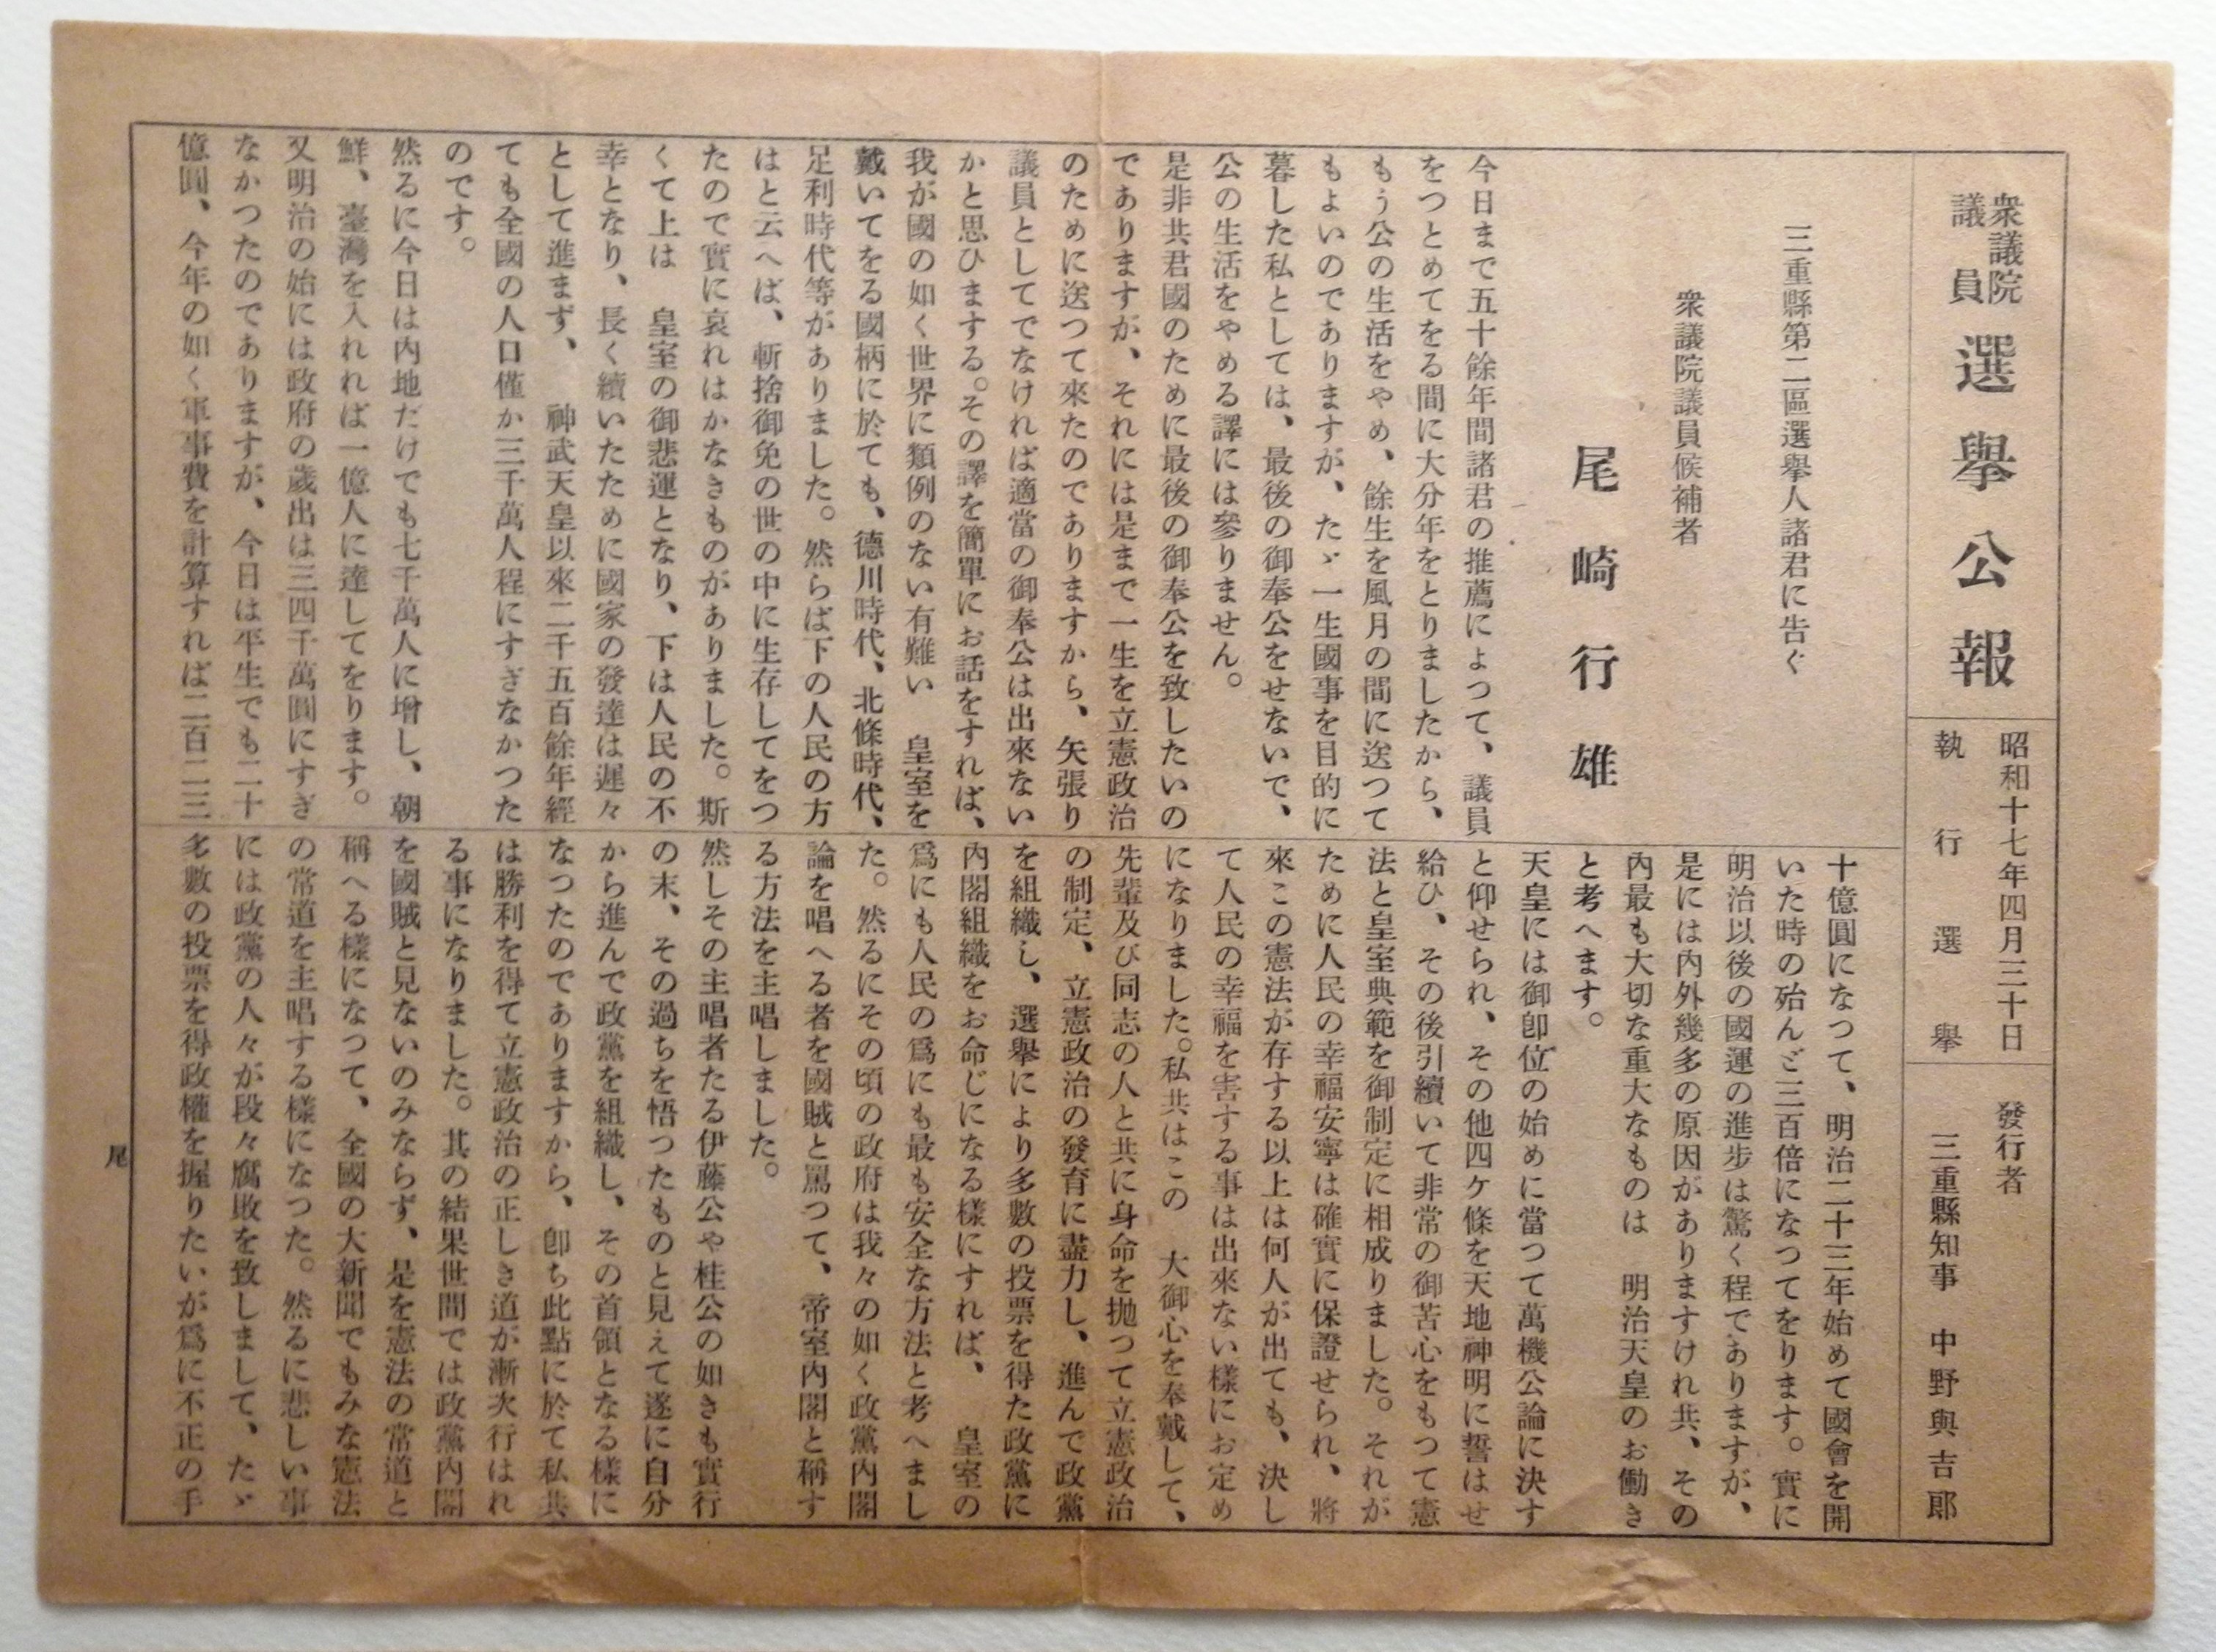 衆議院
議員
選擧公報
昭和十七年四月三十日
執行選擧
發行者
三重縣知事 中野與吉郎
三重縣第二區選擧人諸君に告ぐ
衆議院議員候補者
尾崎行雄
今日まで五十餘年間諸君の推薦によつて、議員
をつとめてをる間に大分年をとりましたから、
もう公の生活をやめ、餘生を風月の間に送つて
もよいのでありますが、たゞ一生國事を目的に
暮した私としては、最後の御奉公をせないで、
公の生活をやめる譯には參りません。
是非共君國のために最後の御奉公を致したいの
でありますが、それには是まで一生を立憲政治
のために送つて來たのでありますから、矢張り
議員としてでなければ適當の御奉公は出來ない
かと思ひまする。その譯を簡單にお話をすれば、
我が國の如く世界に類例のない有難い 皇室を
戴いてをる國柄に於ても、德川時代、北條時代、
足利時代等がありました。然らば下の人民の方
はと云へば、斬捨御免の世の中に生存してをつ
たので實に哀れはかなきものがありました。斯
くて上は 皇室の御悲運となり、下は人民の不
幸となり、長く續いたために國家の發達は遲々
として進まず、 神武天皇以來二千五百餘年經
ても全國の人口僅か三千萬人程にすぎなかつた
のです。
然るに今日は内地だけでも七千萬人に增し、朝
鮮、臺灣を入れれば一億人に達してをります。
又明治の始には政府の歲出は三四千萬圓にすぎ
なかつたのでありますが、今日は平生でも二十
億圓、今年の如く軍事費を計算すれば二百二三
十億圓になつて、明治二十三年始めて國會を開
いた時の殆んど三百倍になつてをります。實に
明治以後の國運の進步は驚く程でありますが、
是には内外幾多の原因がありますけれ共、その
内最も大切な重大なものは 明治天皇のお働き
と考へます。
天皇には御卽位の始めに當つて萬機公論に決す
と仰せられ、その他四ケ條を天地神明に誓はせ
給ひ、その後引續いて非常の御苦心をもつて憲
法と皇室典範を御制定に相成りました。それが
ために人民の幸福安寧は確實に保證せられ、將
來この憲法が存する以上は何人が出ても、決し
て人民の幸福を害する事は出來ない樣にお定め
になりました。私共はこの 大御心を奉戴して、
先輩及び同志の人と共に身命を抛つて立憲政治
の制定、立憲政治の發育に盡力し、進んで政黨
を組織し、選擧により多數の投票を得た政黨に
内閣組織をお命じになる樣にすれば、 皇室の
爲にも人民の爲にも最も安全な方法と考へまし
た。然るにその頃の政府は我々の如く政黨内閣
論を唱へる者を國賊と罵つて、帝室内閣と稱す
る方法を主唱しました。
然しその主唱者たる伊藤公や桂公の如きも實行
の末、その過ちを悟つたものと見えて遂に自分
から進んで政黨を組織し、その首領となる樣に
なつたのでありますから、卽ち此點に於て私共
は勝利を得て立憲政治の正しき道が漸次行はれ
る事になりました。其の結果世間では政黨内閣
を國賊と見ないのみならず、是を憲法の常道と
稱へる樣になつて、全國の大新聞でもみな憲法
の常道を主唱する樣になつた。然るに悲しい事
には政黨の人々が段々腐敗を致しまして、たゞ
多數の投票を得政權を握りたいが爲に不正の手
尾